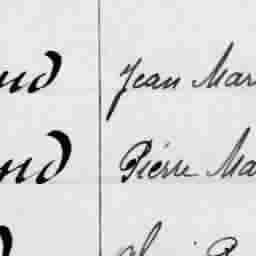 nd Jean Mar
nd Pierre Ma